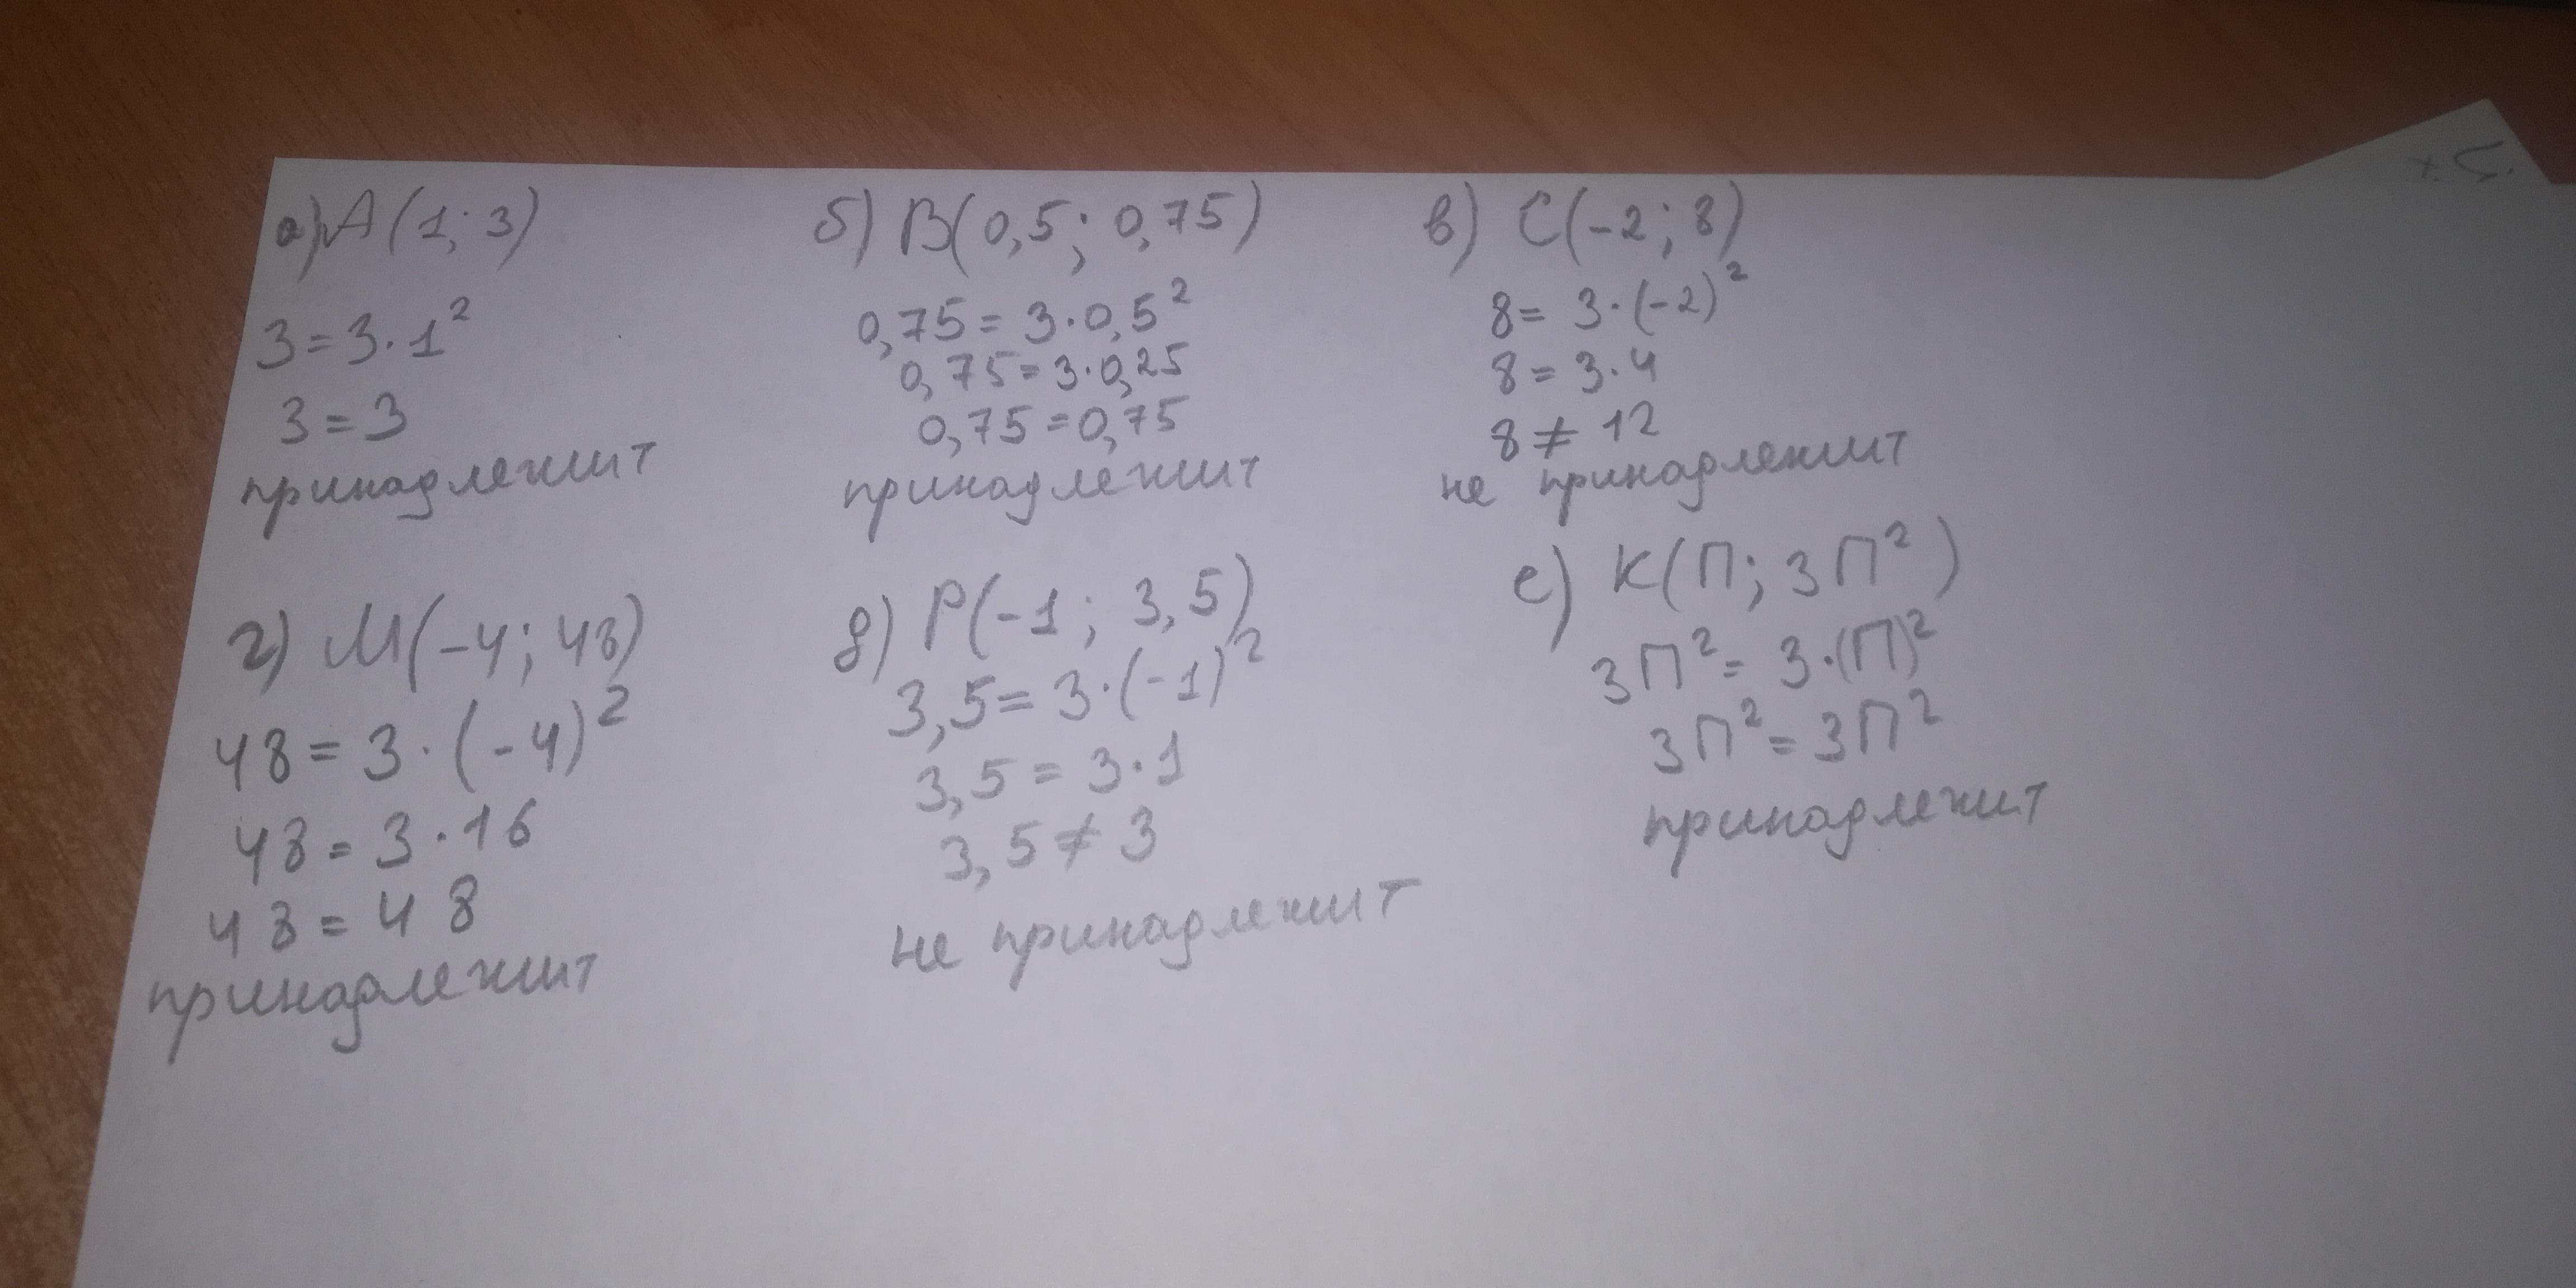 а) А(1; 3)
3=3·1²
3=3
принадлежит
б) В(0,5; 0,75)
0,75=3·0,5²
0,75=3·0,25
0,75=0,75
принадлежит
в) С(-2; 8)
8=3·(-2)²
8=3·4
8≠12
не принадлежит
г) М(-4; 48)
48=3·(-4)²
48=3·16
48=48
принадлежит
д) Р(-1; 3,5)
3,5=3·(-1)²
3,5=3·1
3,5≠3
не принадлежит
е) К(П; 3П²)
3П²=3·(П)²
3П²=3П²
принадлежит